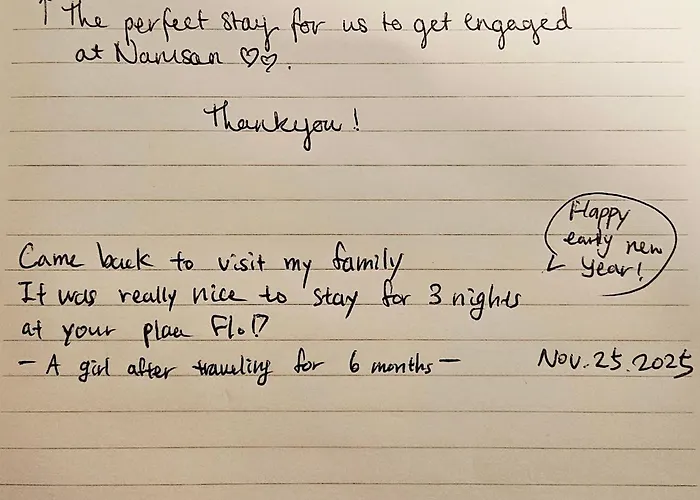 ↑ The perfect stay for us to get engaged
at Namsan ♡♡.
Thankyou!
Happy
early new
year!
Came back to visit my family
It was really nice to stay for 3 nights
at your place
— A girl after traveling for 6 months —
Nov. 25. 2025